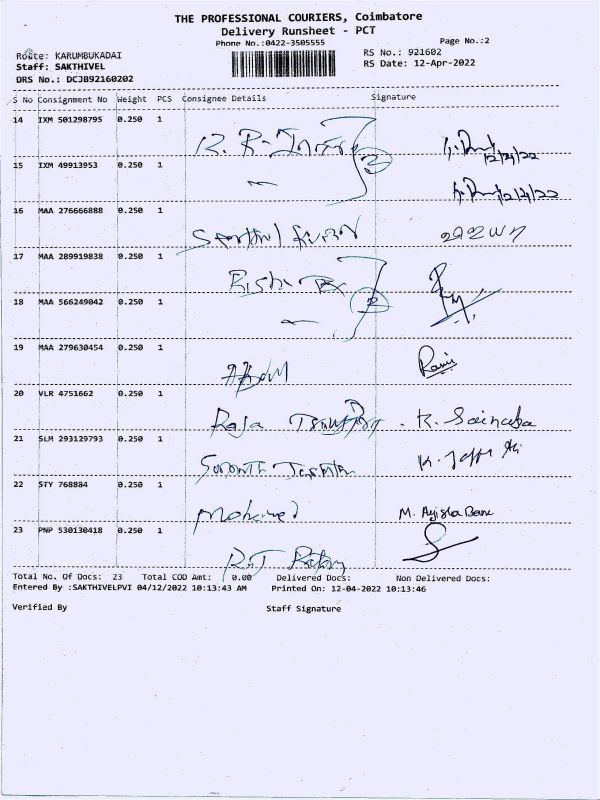 THE PROFESSIONAL COURIERS, Coimbatore
Delivery Runsheet - PCT
Phone No.:0422-3505555
Page No.:2
Route: KARUMBUKADAI
RS No.: 921602
Staff: SAKTHIVEL
RS Date: 12-Apr-2022
DRS No.: DCJB92160202
S No Consignment No Weight PCS Consignee Details Signature
14 IXM 501298795 0.250 1
12/4/22
15 IXM 49913953 0.250 1
12/4/22
16 MAA 276666888 0.250 1
17 MAA 289919838 0.250 1
18 MAA 566249042 0.250 1
19 MAA 279630454 0.250 1
Abdul
20 VLR 4751662 0.250 1
Raja K. Sainaba
21 SLM 293129793 0.250 1
22 STY 768884 0.250 1
Mohamed M. Ayisha Banu
23 PNP 530130418 0.250 1
Total No. Of Docs: 23 Total COD Amt: 0.00 Delivered Docs: Non Delivered Docs:
Entered By :SAKTHIVELPVI 04/12/2022 10:13:43 AM Printed On: 12-04-2022 10:13:46
Verified By Staff Signature